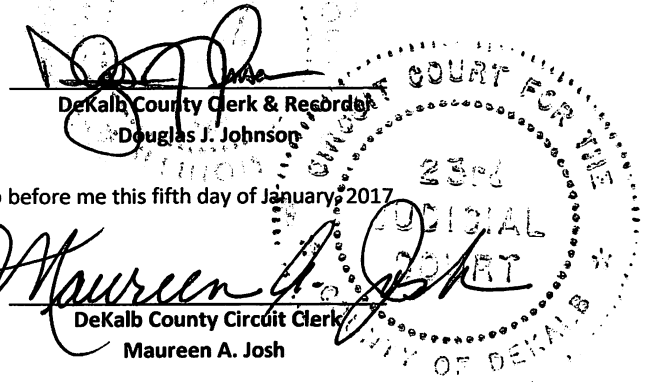 DeKalb County Clerk & Recorder
Douglas J. Johnson
before me this fifth day of January, 2017
Maureen A. Josh
DeKalb County Circuit Clerk
Maureen A. Josh
CIRCUIT COURT FOR THE
23rd
JUDICIAL
COURT
COUNTY OF DEKALB
ILLINOIS